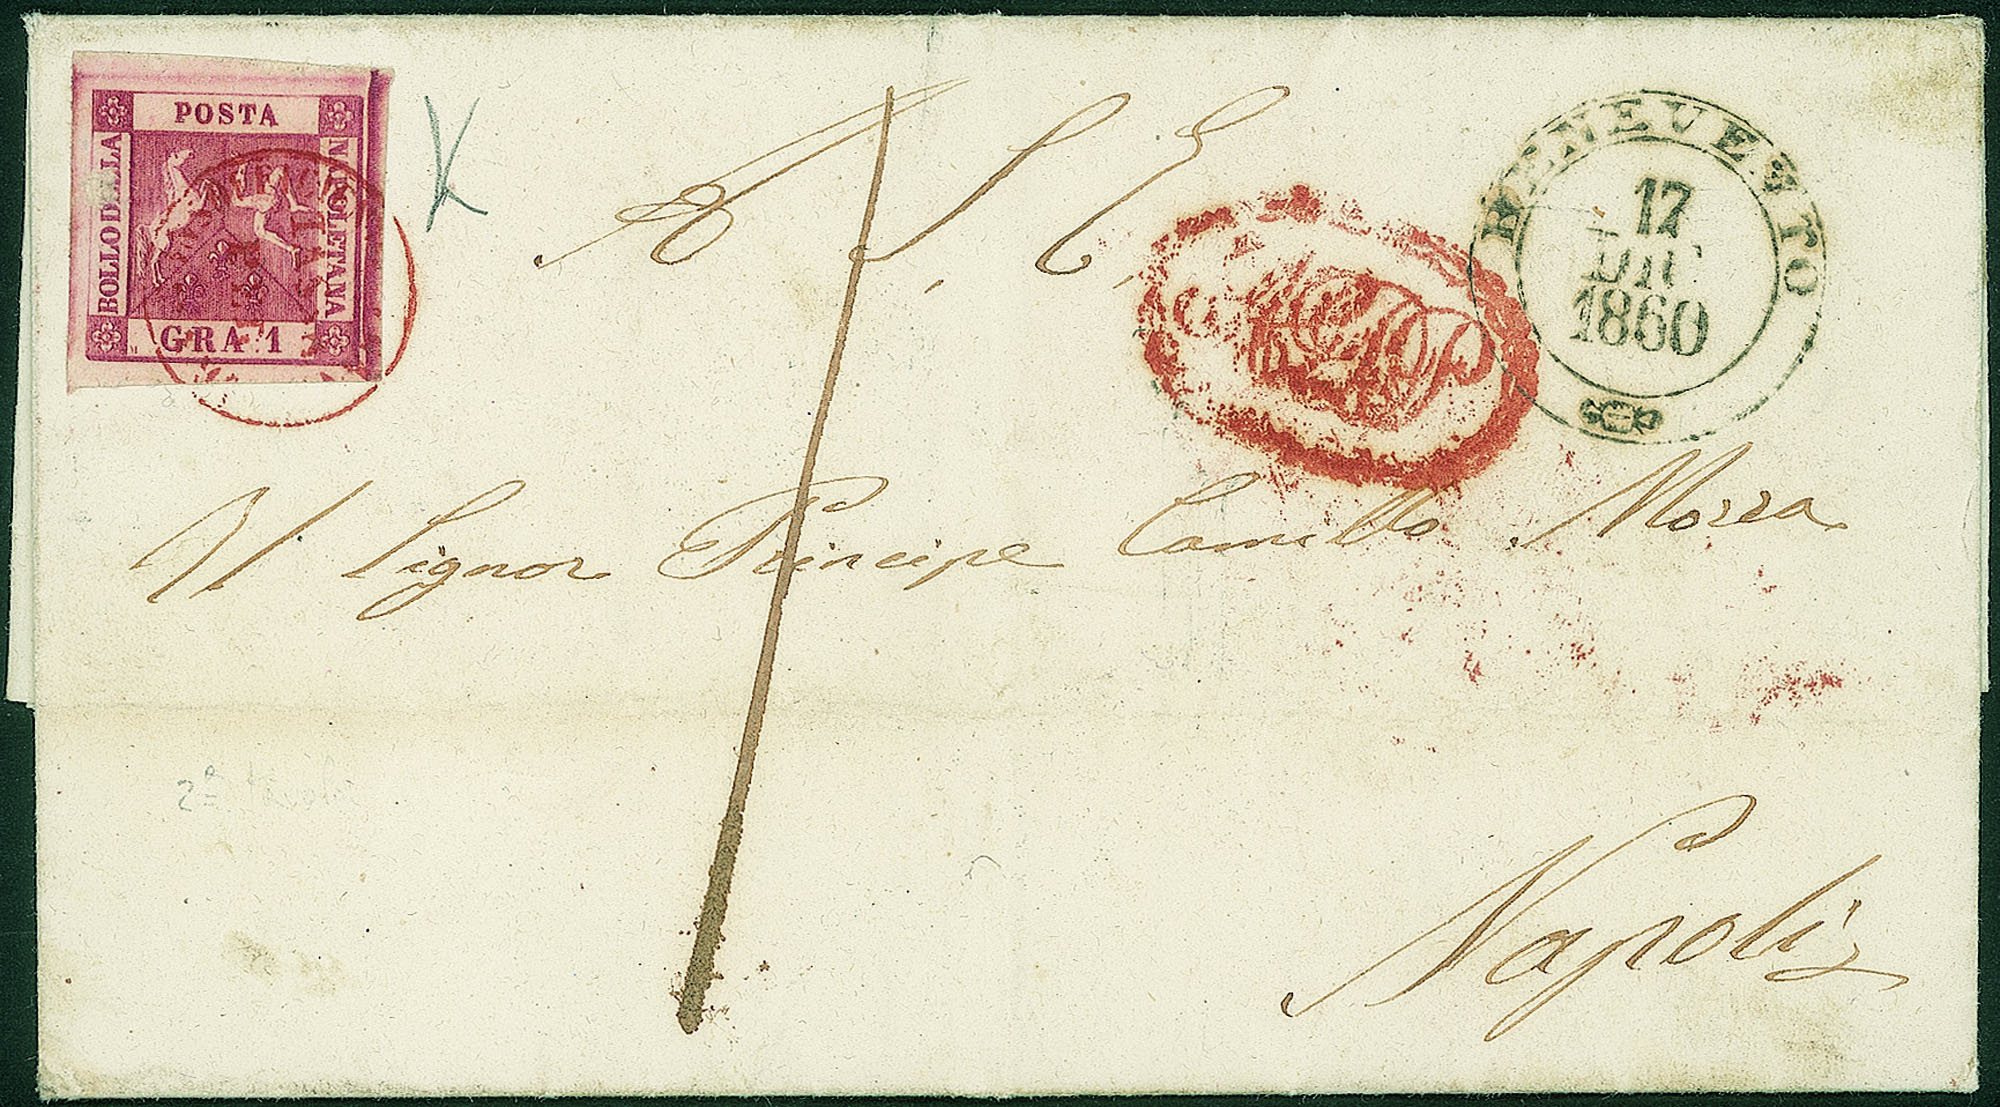 POSTA
BOLLO DELLA
NAPOLETANA
GRA 1
K
BENEVENTO
17
DIC
1860
A S. E.
Al Signor Principe Camillo Morra
Napoli
2ª tavola